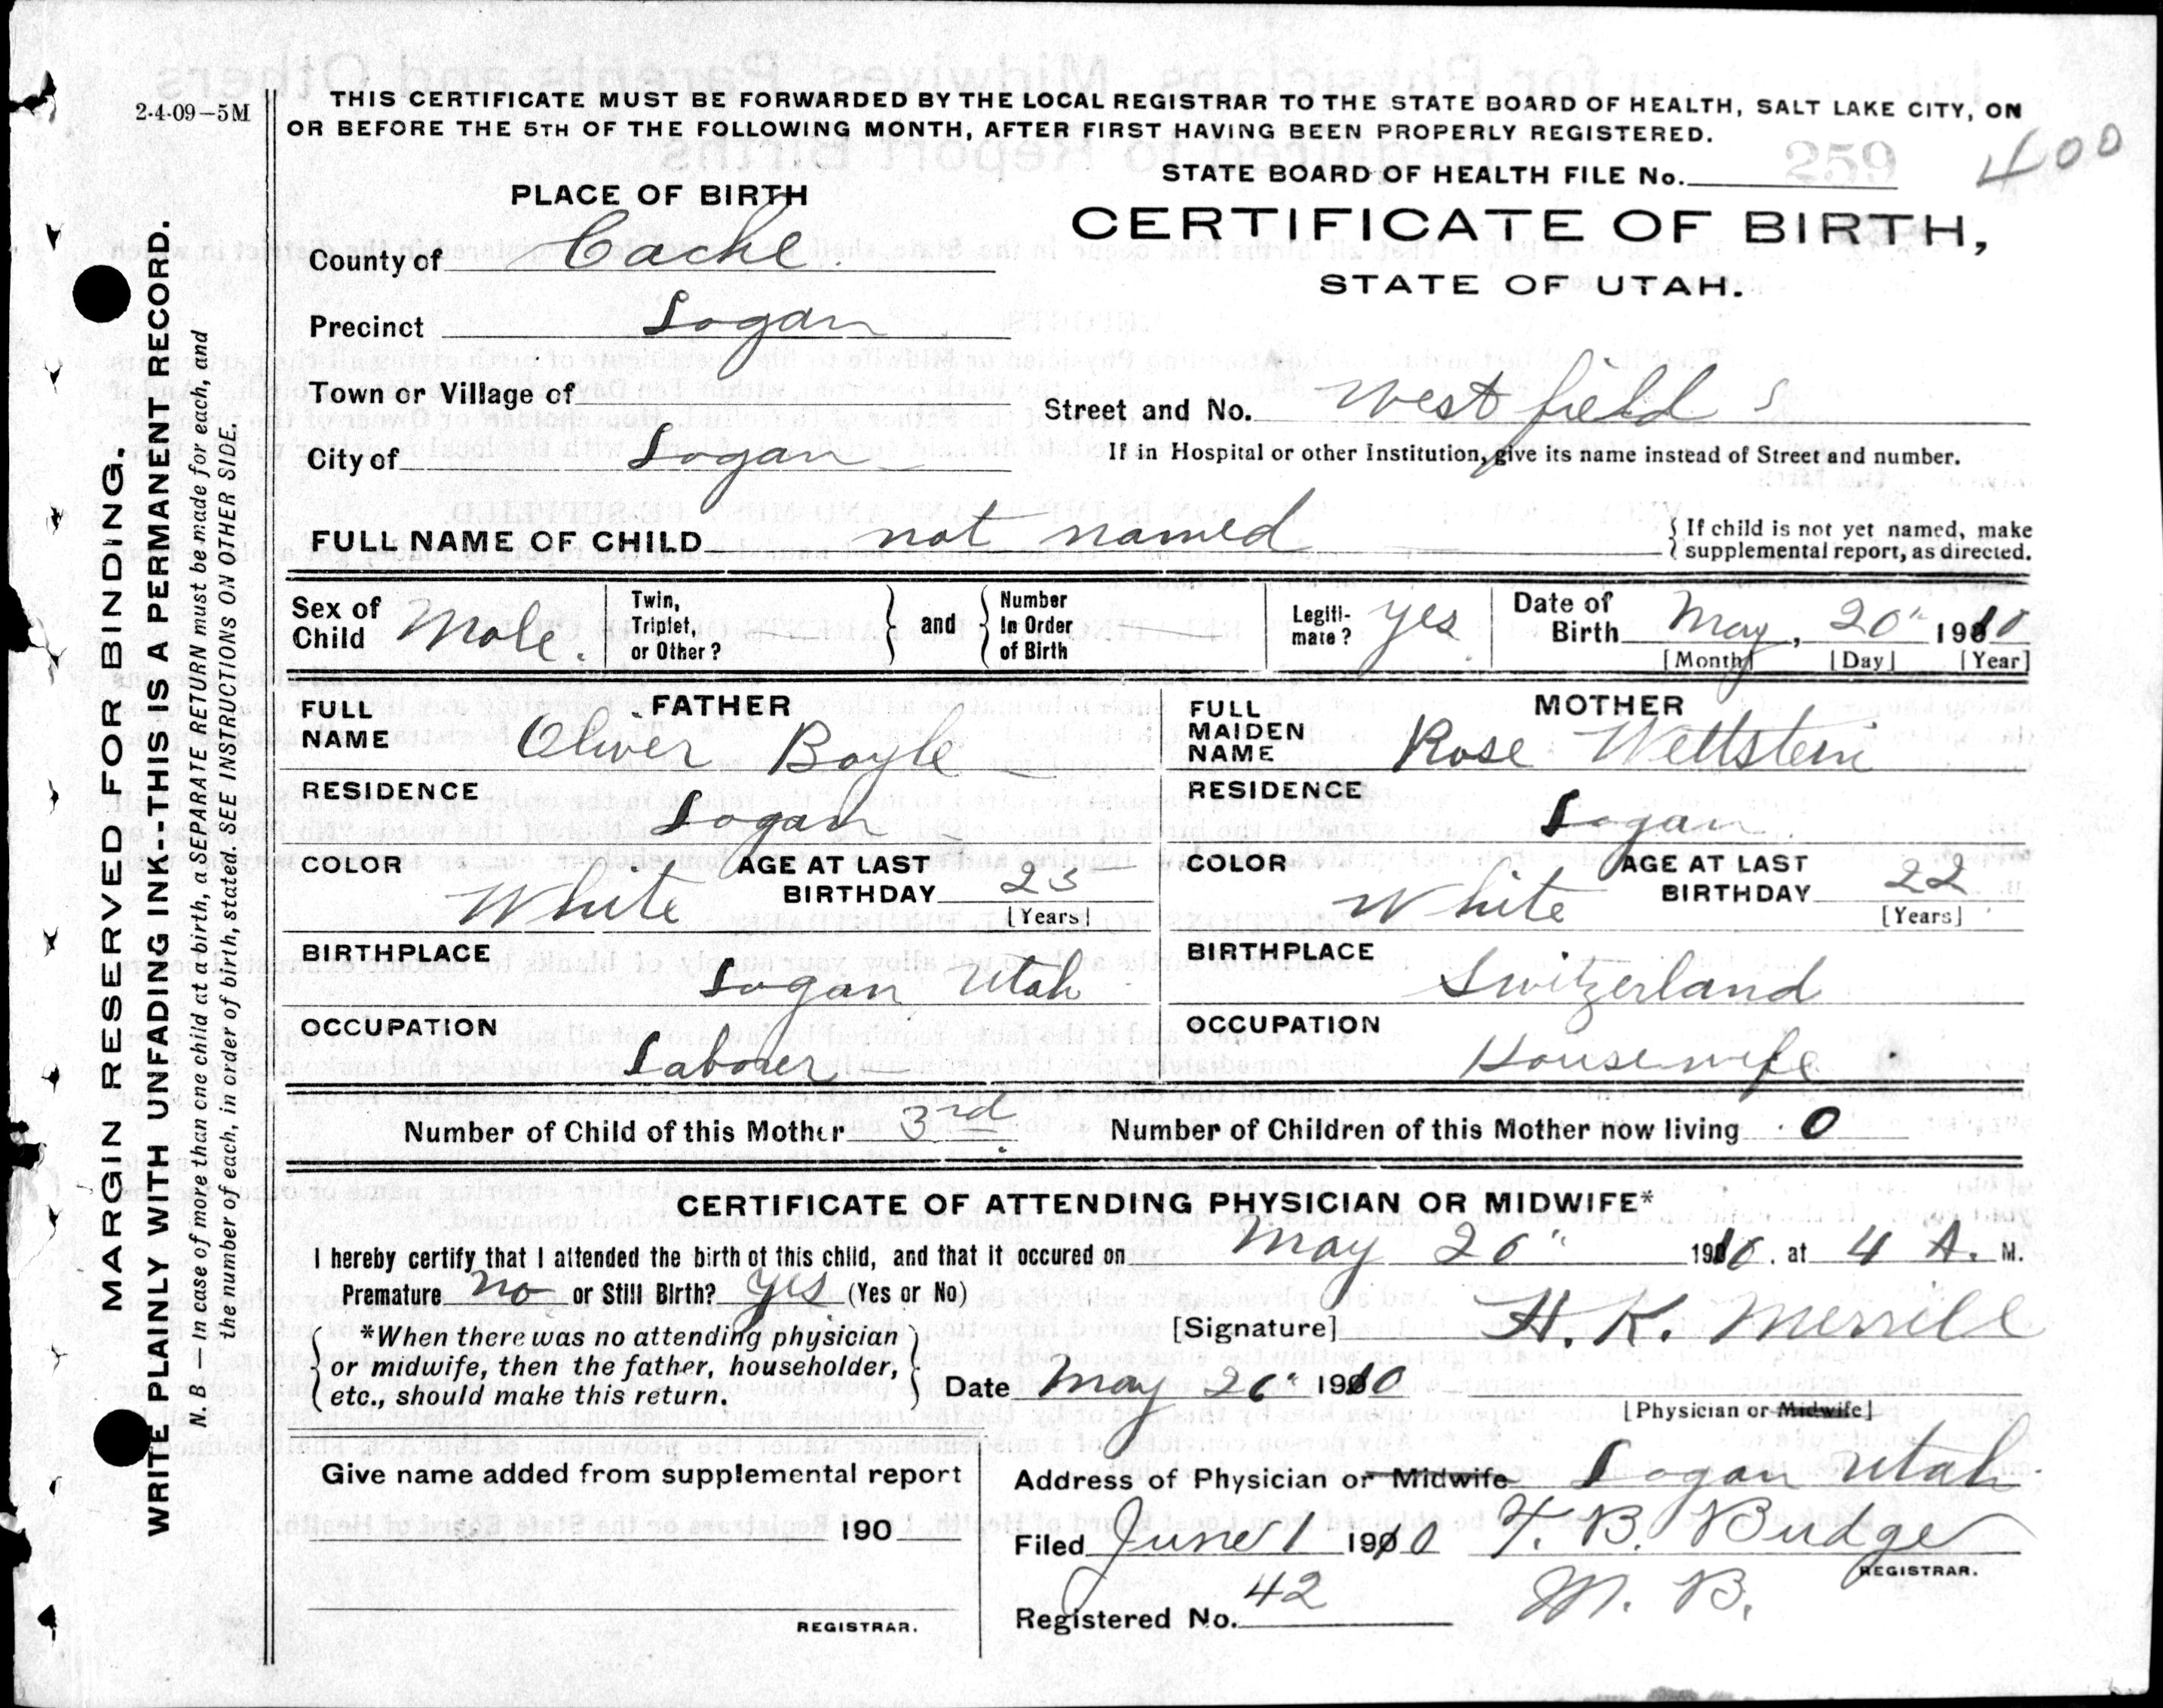 2-4-09-5M
THIS CERTIFICATE MUST BE FORWARDED BY THE LOCAL REGISTRAR TO THE STATE BOARD OF HEALTH, SALT LAKE CITY, ON
OR BEFORE THE 5TH OF THE FOLLOWING MONTH, AFTER FIRST HAVING BEEN PROPERLY REGISTERED.
STATE BOARD OF HEALTH FILE No. 259 400
CERTIFICATE OF BIRTH,
STATE OF UTAH.
PLACE OF BIRTH
County of Cache
Precinct Logan
Town or Village of
Street and No. West field
City of Logan
If in Hospital or other Institution, give its name instead of Street and number.
FULL NAME OF CHILD not named
{ If child is not yet named, make
supplemental report, as directed.
Sex of Child Male.
Twin, Triplet, or Other?
and
Number In Order of Birth
Legiti-mate? yes
Date of Birth May, 20" 1910
[Month] [Day] [Year]
FATHER
FULL NAME Oliver Boyle
RESIDENCE Logan
COLOR White
AGE AT LAST BIRTHDAY 23
[Years]
BIRTHPLACE
Logan Utah
OCCUPATION
Laborer
MOTHER
FULL MAIDEN NAME Rose Wettstein
RESIDENCE Logan
COLOR White
AGE AT LAST BIRTHDAY 22
[Years]
BIRTHPLACE
Switzerland
OCCUPATION
Housewife
Number of Child of this Mother 3rd
Number of Children of this Mother now living 0
CERTIFICATE OF ATTENDING PHYSICIAN OR MIDWIFE*
I hereby certify that I attended the birth of this child, and that it occured on May 20" 1910. at 4 A. M.
Premature no or Still Birth? yes (Yes or No)
[Signature] H. K. Merrill
*When there was no attending physician
or midwife, then the father, householder,
etc., should make this return.
Date May 20" 1910
[Physician or Midwife]
Give name added from supplemental report
190
REGISTRAR.
Address of Physician or Midwife Logan Utah.
Filed June 1 1910 T. B. Budge
REGISTRAR.
M. B.
Registered No. 42
MARGIN RESERVED FOR BINDING.
WRITE PLAINLY WITH UNFADING INK--THIS IS A PERMANENT RECORD.
N. B — In case of more than one child at a birth, a SEPARATE RETURN must be made for each, and
the number of each, in order of birth, stated. SEE INSTRUCTIONS ON OTHER SIDE.